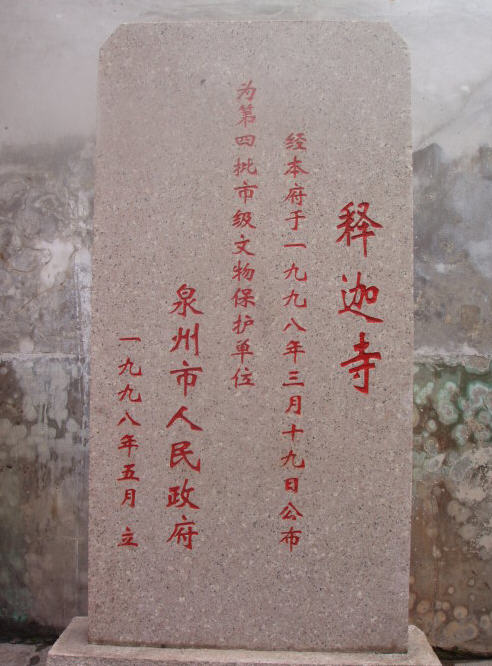 释迦寺
经本府于一九九八年三月十九日公布
为第四批市级文物保护单位
泉州市人民政府
一九九八年五月 立